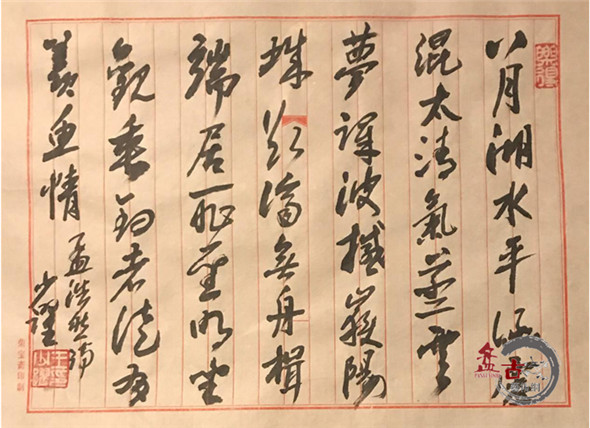 八月湖水平涵虚
混太清氣蒸雲
夢澤波撼嶽陽
城欲濟無舟楫
端居耻聖明坐
觀垂釣者徒有
羨魚情 孟浩然詩
盘古